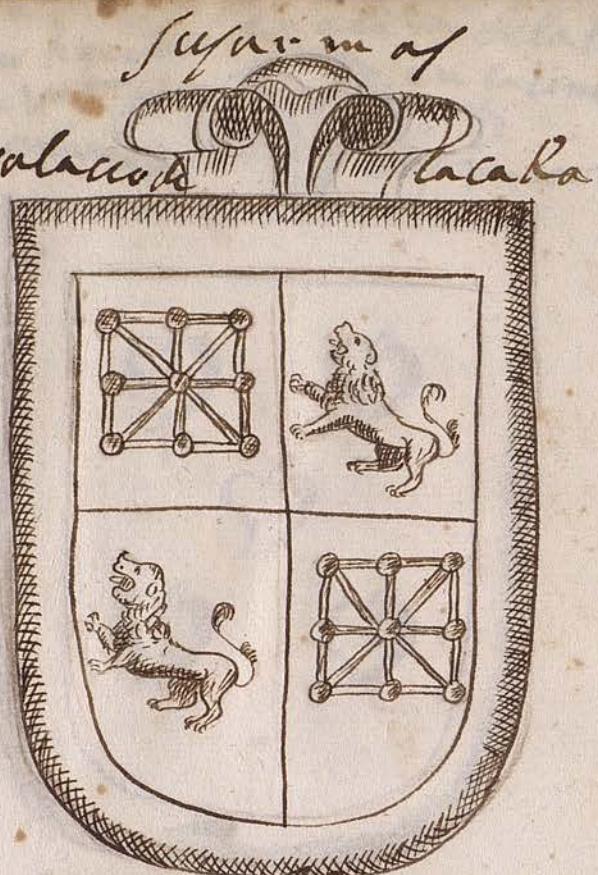 sus armas
alacio de lacaRa